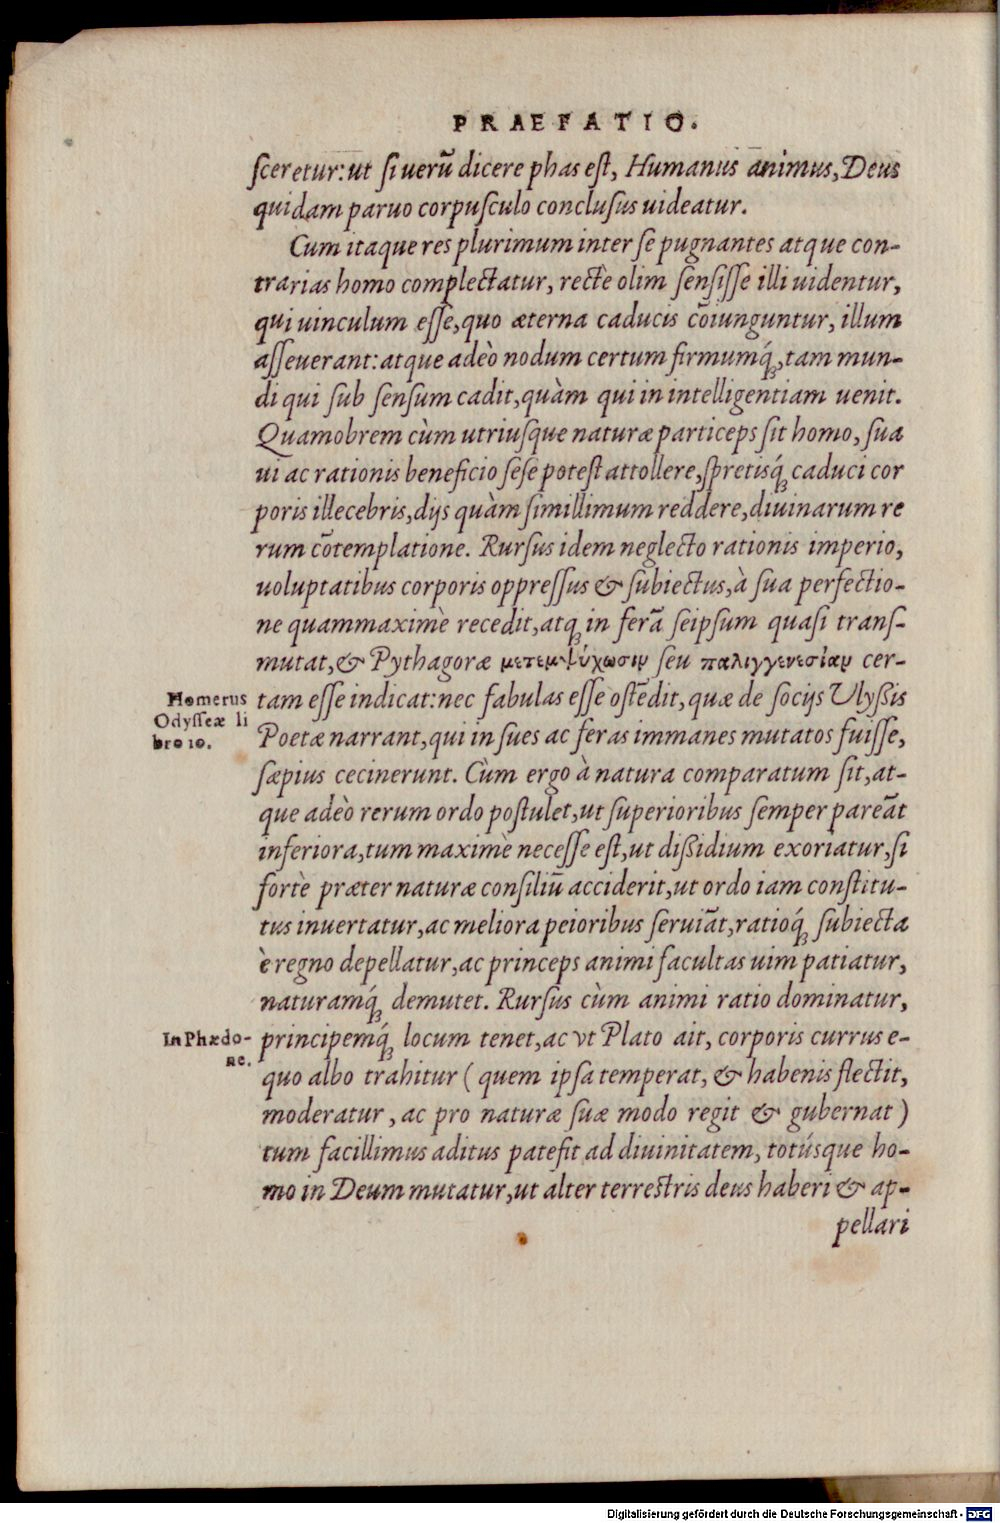 PRAEFATIO.
sceretur: ut si uerũ dicere phas est, Humanus animus, Deus
quidam paruo corpusculo conclusus uideatur.
Cum itaque res plurimum inter se pugnantes atque con-
trarias homo complectatur, rectè olim sensisse illi uidentur,
qui uinculum esse, quo æterna caducis cõiunguntur, illum
asseuerant: atque adeò nodum certum firmumq́;, tam mun-
di qui sub sensum cadit, quàm qui in intelligentiam uenit.
Quamobrem cùm utriusque naturæ particeps sit homo, sua
ui ac rationis beneficio sese potest attollere, spretisq́; caduci cor
poris illecebris, dijs quàm simillimum reddere, diuinarum re
rum cõtemplatione. Rursus idem neglecto rationis imperio,
uoluptatibus corporis oppressus & subiectus, à sua perfectio-
ne quammaximè recedit, atq; in ferã seipsum quasi trans-
mutat, & Pythagoræ μετεμψύχωσιν seu παλιγγενεσίαν cer-
Homerus
Odysseæ li
bro 10.
tam esse indicat: nec fabulas esse ostẽdit, quæ de socijs Vlyßis
Poetæ narrant, qui in sues ac feras immanes mutatos fuisse,
sæpius cecinerunt. Cùm ergo à natura comparatum sit, at-
que adeò rerum ordo postulet, ut superioribus semper pareãt
inferiora, tum maximè necesse est, ut dißidium exoriatur, si
fortè præter naturæ consiliũ acciderit, ut ordo iam constitu-
tus inuertatur, ac meliora peioribus seruiãt, ratioq́; subiecta
è regno depellatur, ac princeps animi facultas uim patiatur,
naturamq́; demutet. Rursus cùm animi ratio dominatur,
In Phædo-
ne.
principemq́; locum tenet, ac vt Plato ait, corporis currus e-
quo albo trahitur ( quem ipsa temperat, & habenis flectit,
moderatur, ac pro naturæ suæ modo regit & gubernat )
tum facillimus aditus patefit ad diuinitatem, totúsque ho-
mo in Deum mutatur, ut alter terrestris deus haberi & ap-
pellari
Digitalisierung gefördert durch die Deutsche Forschungsgemeinschaft - DFG